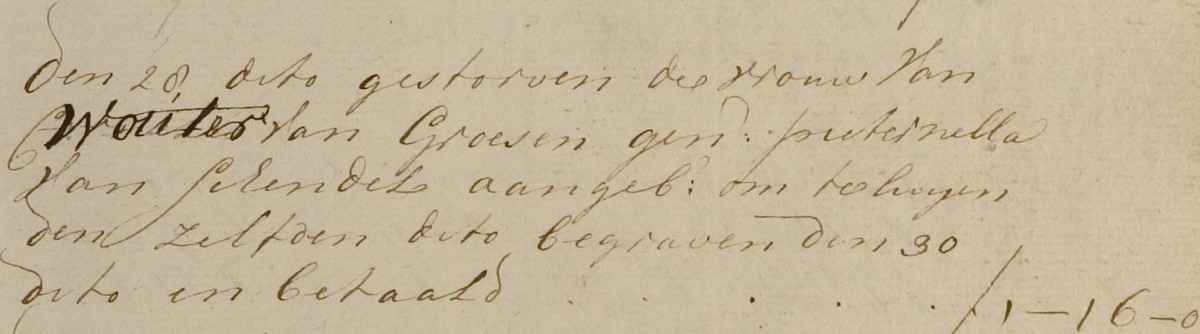 den 28 dito gestorven de vrouw van
Wouter van Groesen gen: pieternella
van schendel aangeb: om te luyen
den zelfden dito begraven den 30
dito en betaald . . . . . / 1-16-0